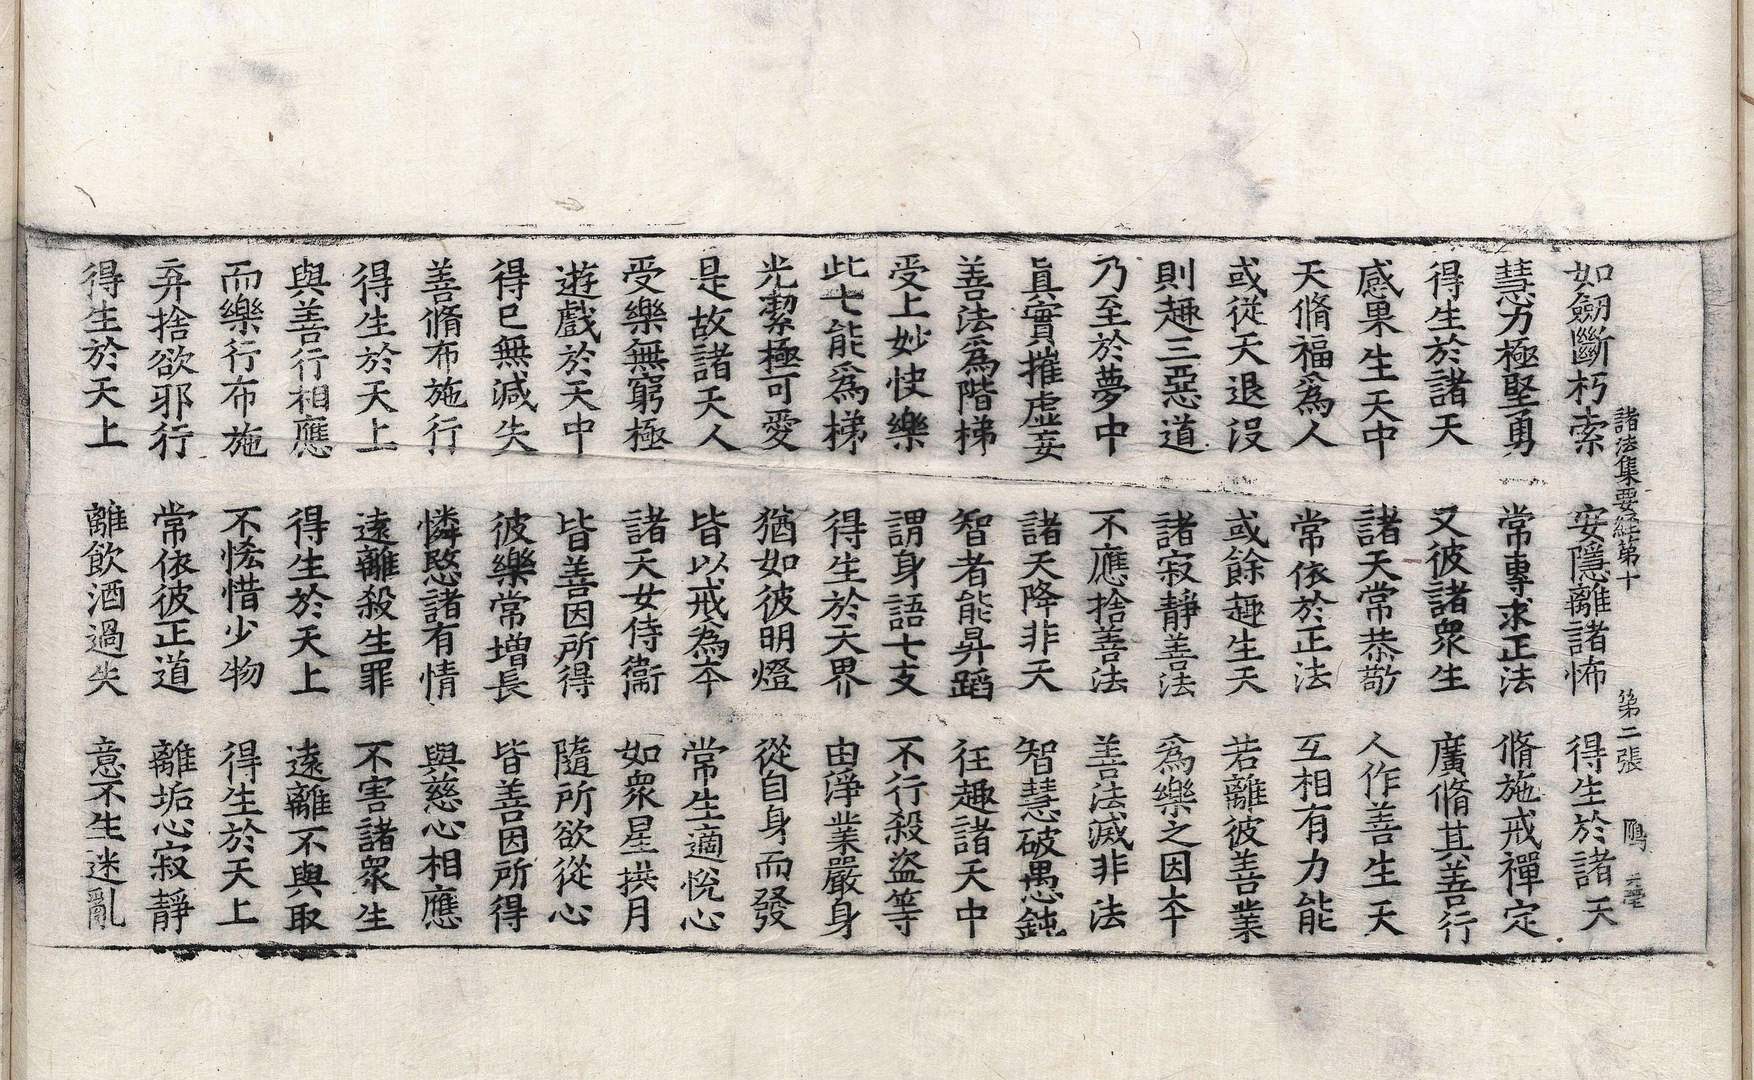 諸法集要經第十 第二張 鴈
如劒斷朽索 安隱離諸怖 得生於諸天
慧力極堅勇 常專求正法 脩施戒禪定
得生於諸天 又彼諸衆生 廣脩其善行
感果生天中 諸天常恭敬 人作善生天
天脩福爲人 常依於正法 互相有力能
或從天退沒 或餘趣生天 若離彼善業
則趣三惡道 諸寂靜善法 爲樂之因本
乃至於夢中 不應捨善法 善法滅非法
眞實摧虛妄 諸天降非天 智慧破愚鈍
善法爲階梯 智者能昇蹈 往趣諸天中
受上妙快樂 謂身語七支 不行殺盜等
此七能爲梯 得生於天界 由淨業嚴身
光潔極可愛 猶如彼明燈 從自身而發
是故諸天人 皆以戒為本 常生適悅心
受樂無窮極 諸天女侍衞 如衆星拱月
遊戲於天中 皆善因所得 隨所欲從心
得已無減失 彼樂常增長 皆善因所得
善脩布施行 憐愍諸有情 與慈心相應
得生於天上 遠離殺生罪 不害諸衆生
與善行相應 得生於天上 遠離不與取
而樂行布施 不恡惜少物 得生於天上
弃捨欲邪行 常依彼正道 離垢心寂靜
得生於天上 離飲酒過失 意不生迷亂